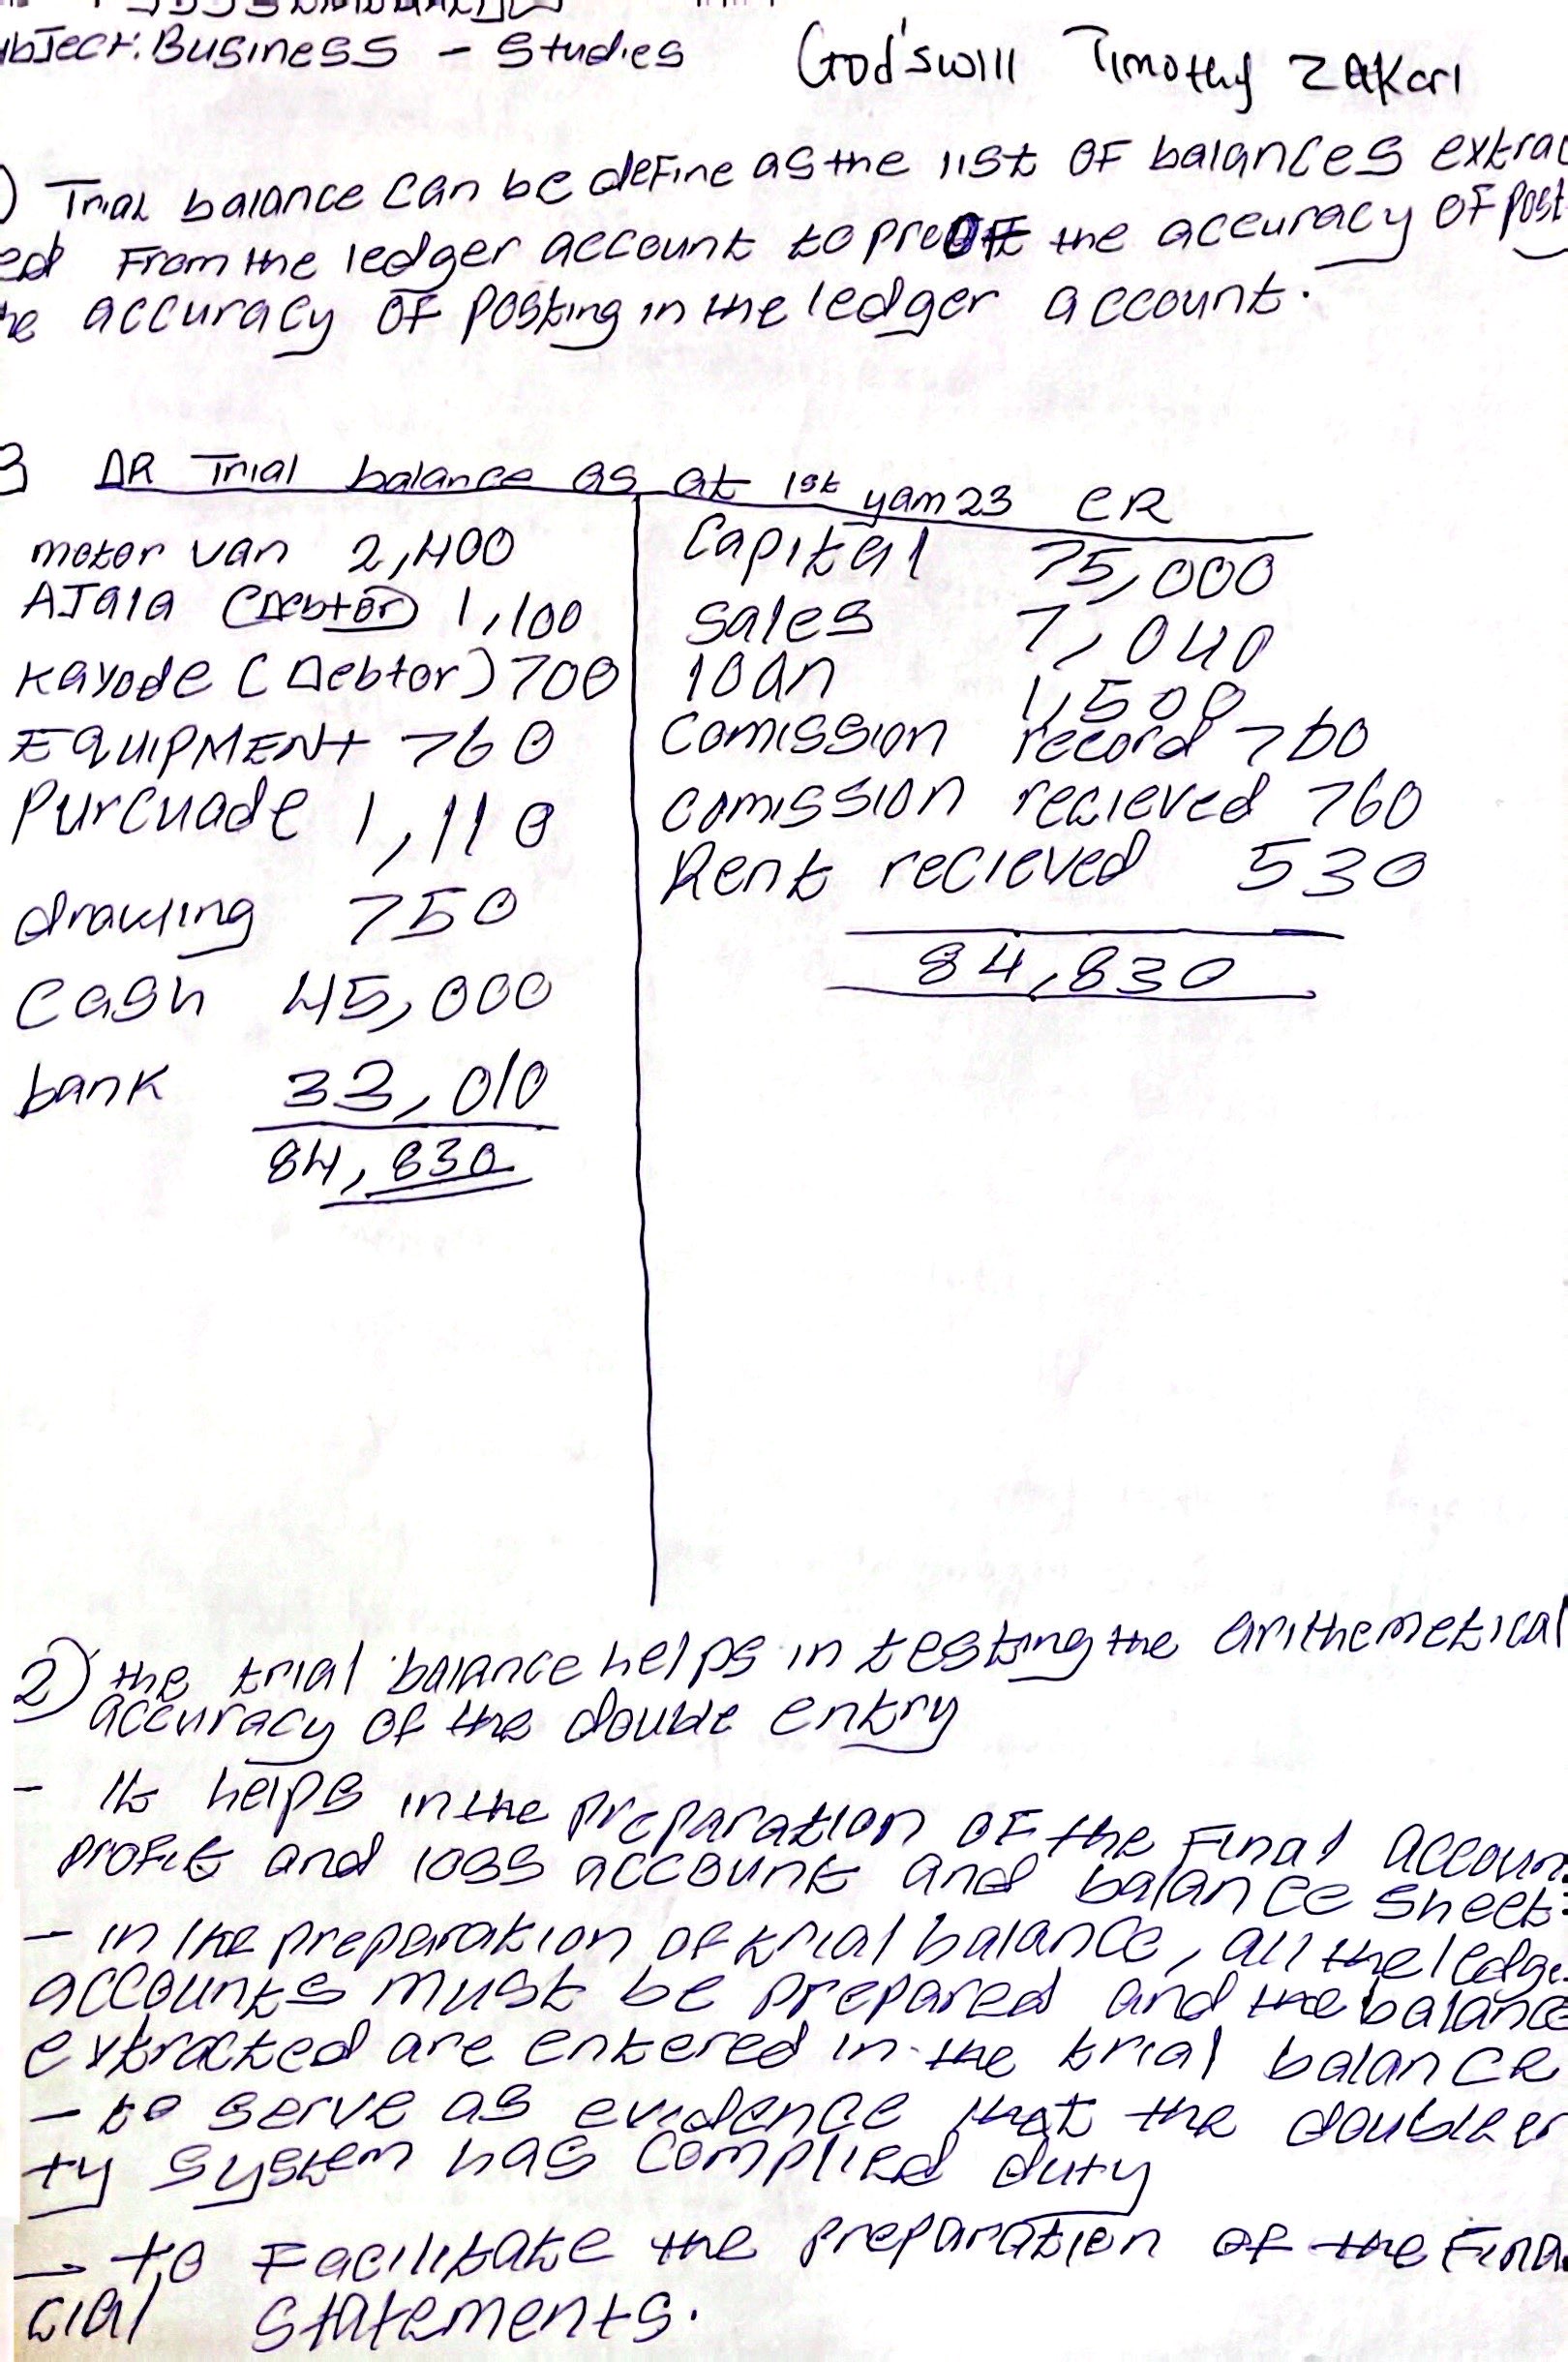 bject: Business - Studies God'swill Timothy Zakari
) Trial balance can be define as the list of balances extrac
ed From the ledger account to prooft the accuracy of post
he accuracy of posting in the ledger account.
3 DR Trial balance as at 1st yam23 CR
motor van 2,400 Capital 75,000
AJala (Debtor) 1,100 sales 7,040
Kayode (Debtor) 700 loan 1,500
EQUIPMENT 760 Comission record 760
Purchade 1,110 comission recieved 760
drawling 750 Rent recieved 530
Cash 45,000 84,830
bank 33,010
84,830
2) the trial balance helps in testing the arithemetical
accuracy of the double entry
- It helps in the preparation of the Final accoun
profit and loss account and balance sheet
- in the preparation of trial balance, all the ledge
accounts must be prepared and the balance
extracted are entered in the trial balance
- to serve as evidence that the double en
ty system has complied duty
- to Facilitate the preparation of the Fina
cial statements.